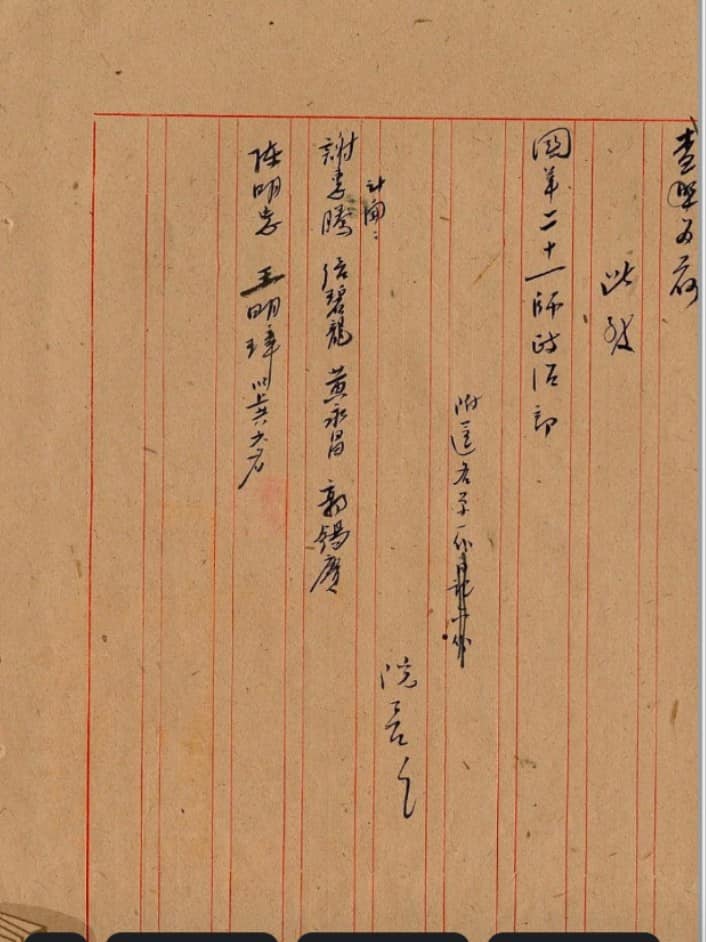 查照為荷
此致
國軍二十一師政治部
附送名單一份
院長
計開：
謝李騰 倍碧龍 黃永昌 郭錫賡
陳明忠 王明璋 以上共六名